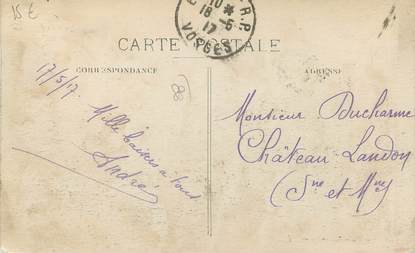 15 €
10 *
18 -5
17
VOSGES
R.P.
CARTE POSTALE
CORRESPONDANCE
ADRESSE
17/5/17
88
Mille
baisers à tous
André
Monsieur Ducharme
Château-Landon
(Sne et Mne)